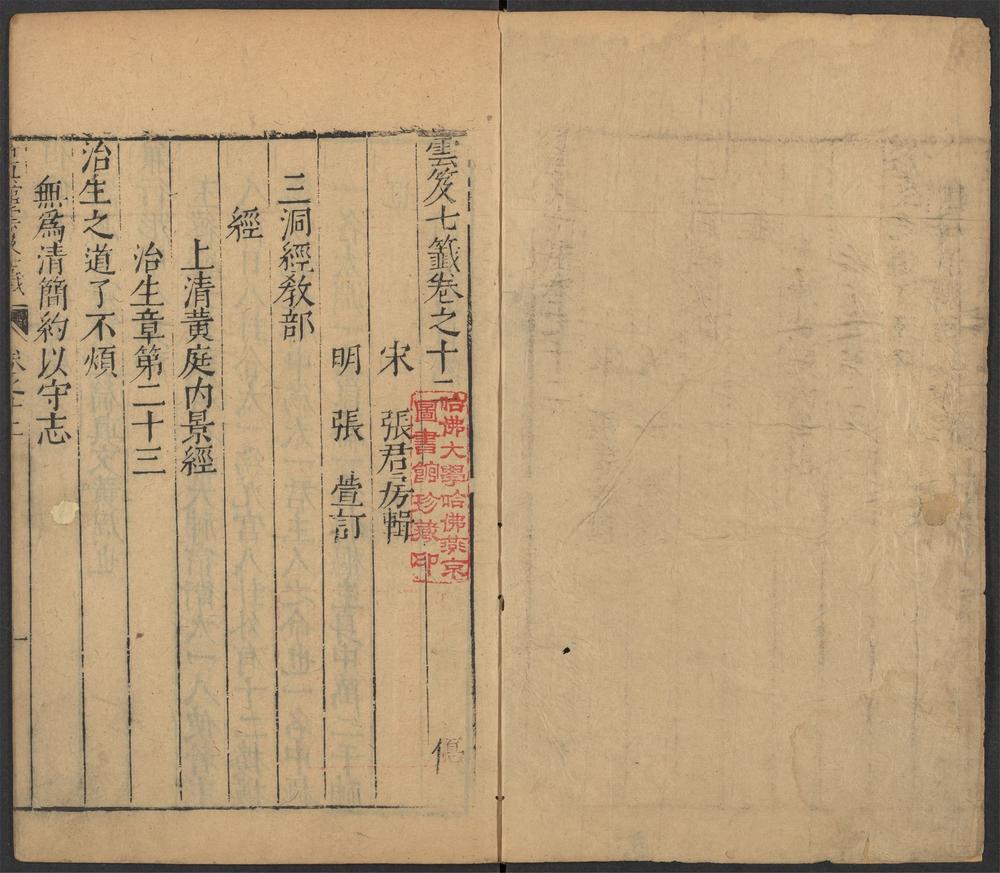 雲笈七籤卷之十二
僡
宋 張君房輯
明 張 萱訂
三洞經教部
經
上清黄庭内景經
治生章第二十三
治生之道了不煩
無爲清簡約以守志
哈佛大學哈佛燕京
圖書館珍藏印